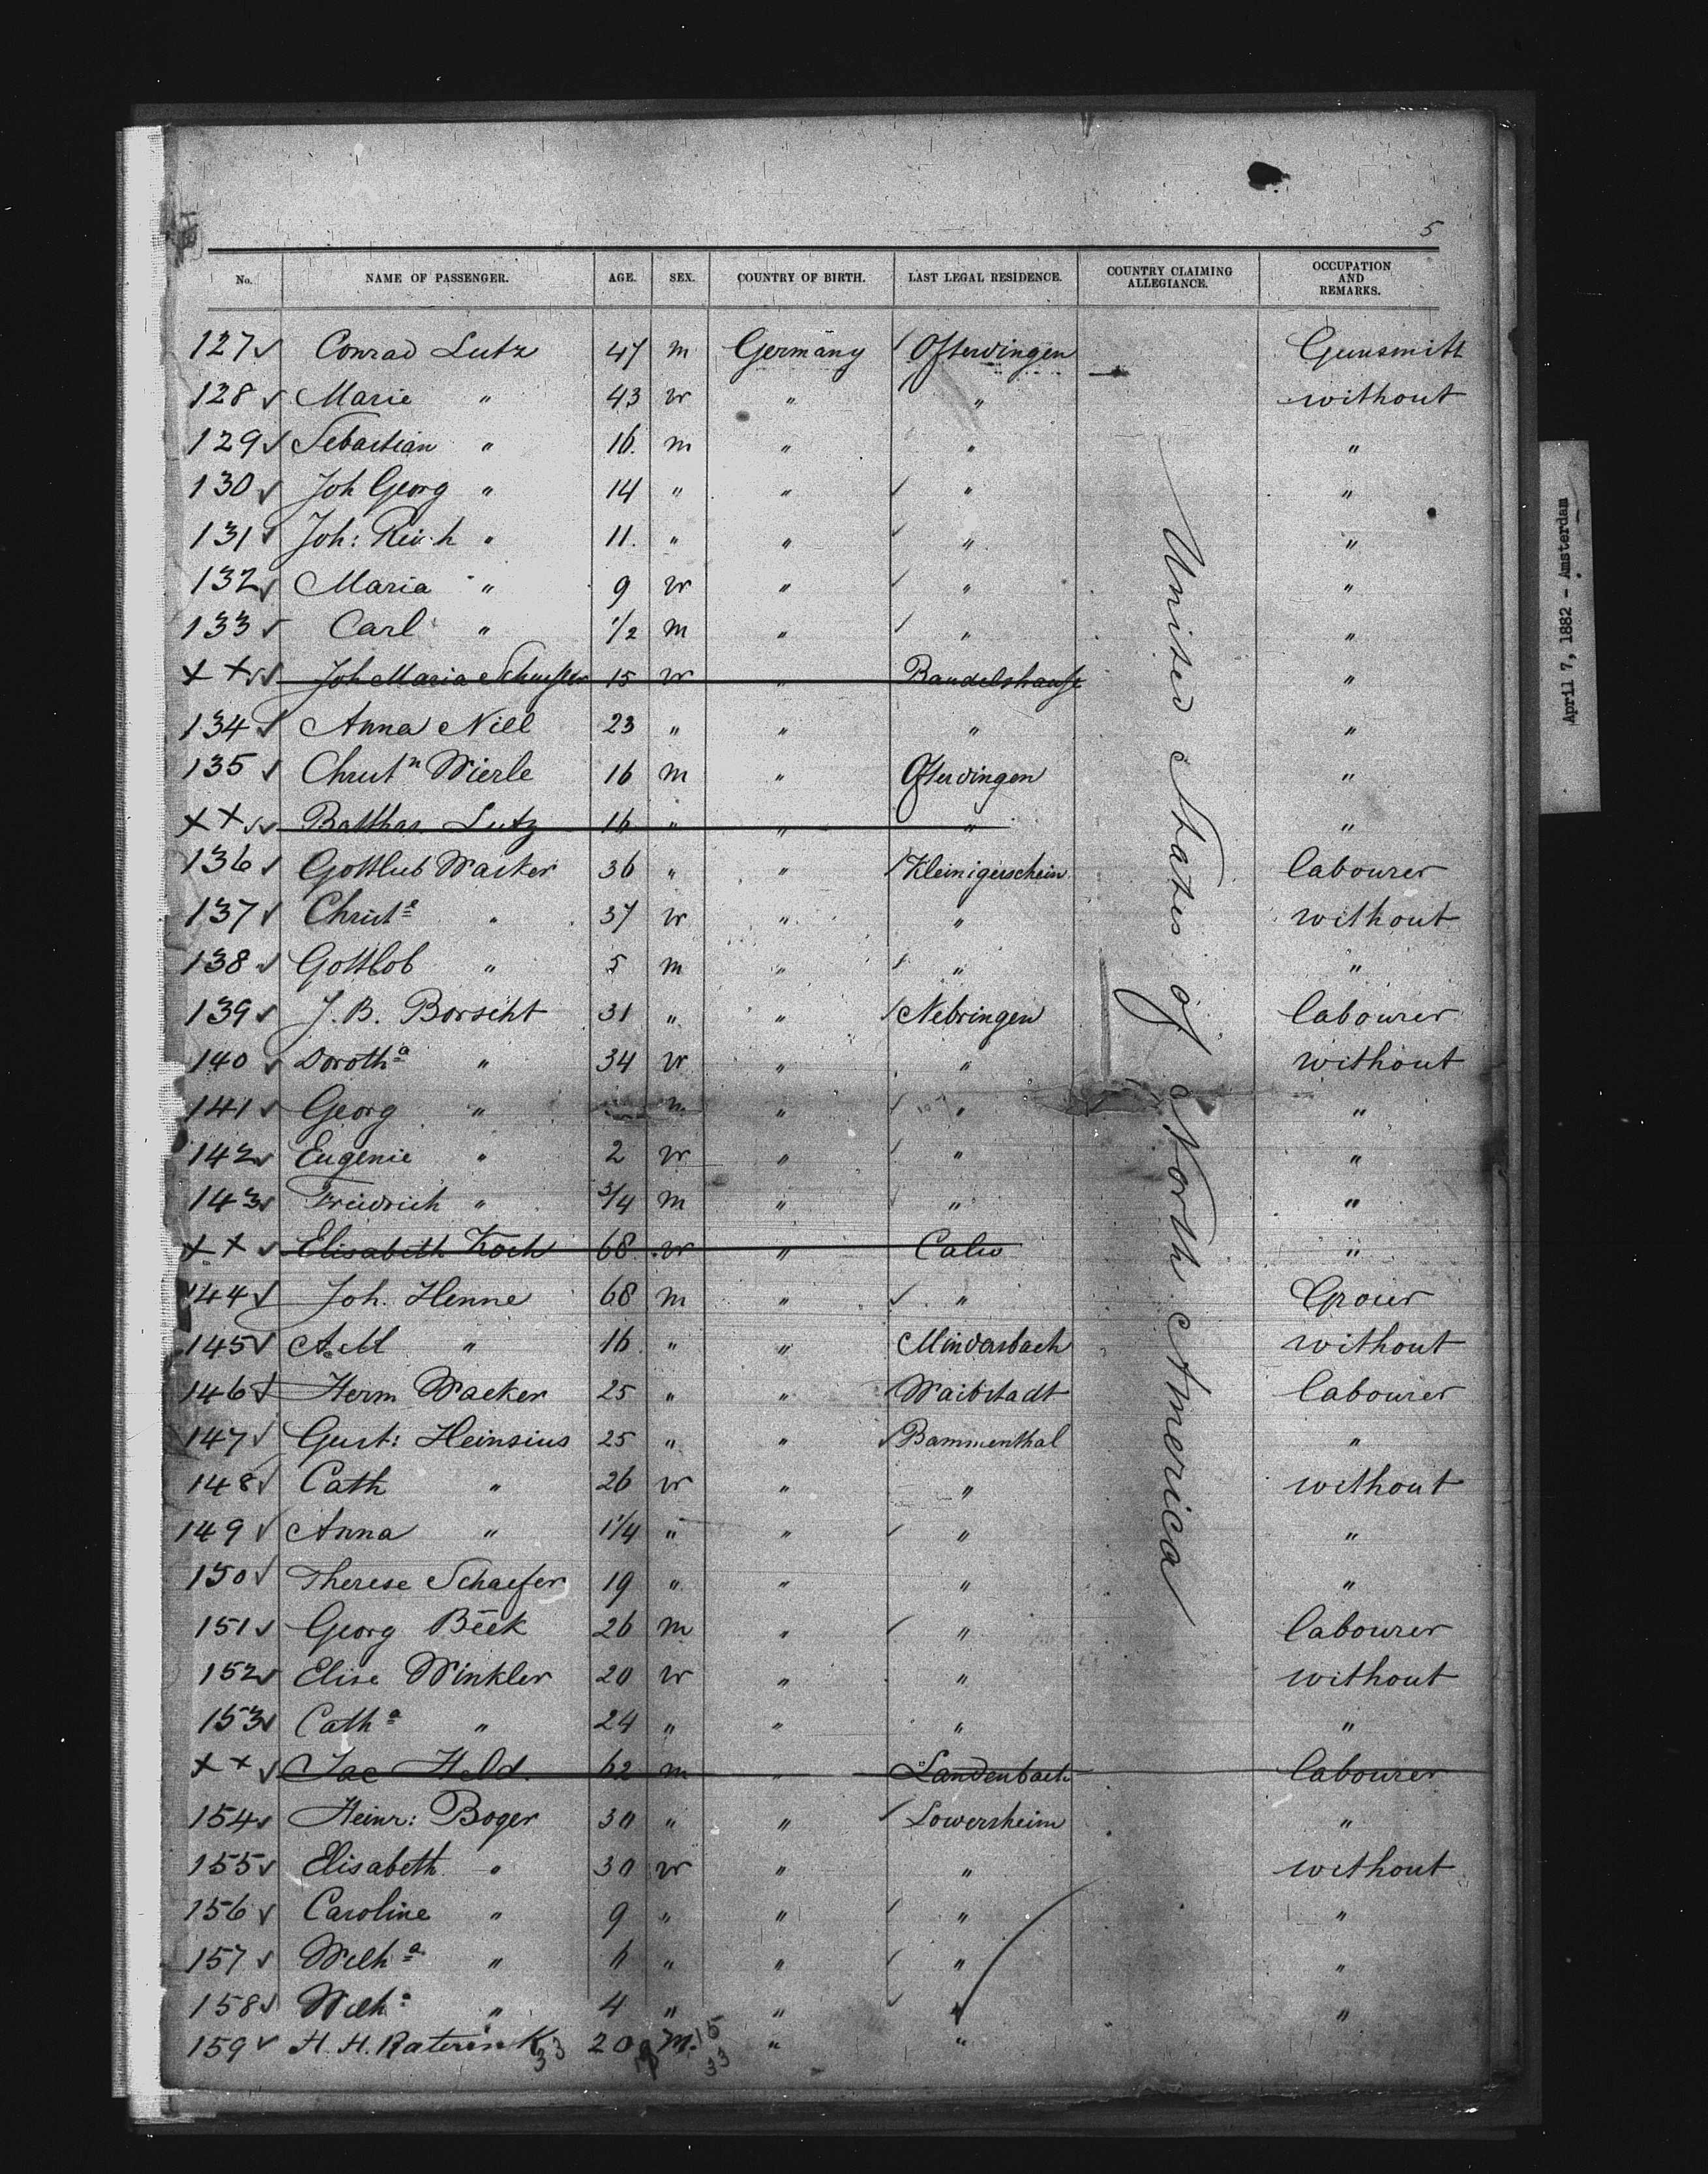 5
No. NAME OF PASSENGER. AGE. SEX. COUNTRY OF BIRTH. LAST LEGAL RESIDENCE. COUNTRY CLAIMING ALLEGIANCE. OCCUPATION AND REMARKS.
127 Conrad Lutz 47 m Germany Ofterdingen Gunsmith
128 Marie " 43 w " " without
129 Sebastian " 16. m " " "
130 Joh Georg " 14 " " " "
131 Joh: " 11. " " " "
132 Maria " 9 w " " "
133 Carl " 1/2 m " " "
x x Joh Maria 15 w " "
134 Anna Nill 23 " " " "
135 Christn Wierle 16 m " Ofterdingen "
x x Balthas Lutz 16 " " " "
136 Gottlieb 36 " " labourer
137 Christa " 37 w " " without
138 Gottlob " 5 m " " "
139 J. B. Borscht 31 " " Nebringen labourer
140 Dorotha " 34 w " " without
141 Georg " m " " "
142 Eugenie " 2 w " " "
143 Friedrich " 3/4 m " " "
x x Elisabeth Koch 68 w " Calw "
144 Joh. Henne 68 m " " Grocer
145 A. M " 16 " " Mindersbach without
146 Herm Wacker 25 " " Waibstadt labourer
147 Gust: Heinsius 25 " " Bammenthal "
148 Cath " 26 w " " without
149 Anna " 1 1/4 " " " "
150 Therese Schaefer 19 " " " "
151 Georg Beek 26 m " " labourer
152 Elise Winkler 20 w " " without
153 Catha " 24 " " " "
x x Jac Held. 62 m " Landenbach labourer
154 Heinr: Boger 30 " " Lowersheim "
155 Elisabeth " 30 w " " without
156 Caroline " 9 " " " "
157 Wilha " 6 " " " "
158 Wilha " 4 " " " "
159 H. H. Raterink 20 m. " "
33 15
33
United States of North America
April 7, 1882 - Amsterdam